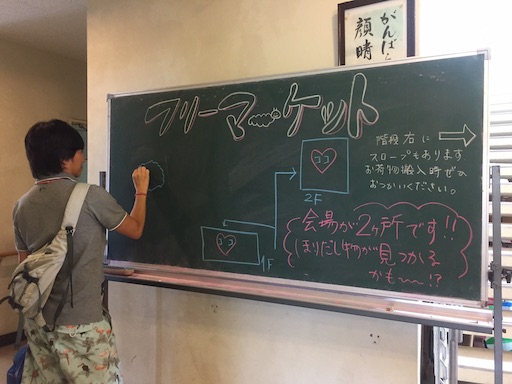 がんばら
顔晴
フリーマーケット
階段右に
スロープもあります
お荷物搬入時ぜひ
おつかいください。
ココ
2F
ココ
1F
会場が2ヶ所です!!
ほりだし物が見つかる
かも〜〜!?